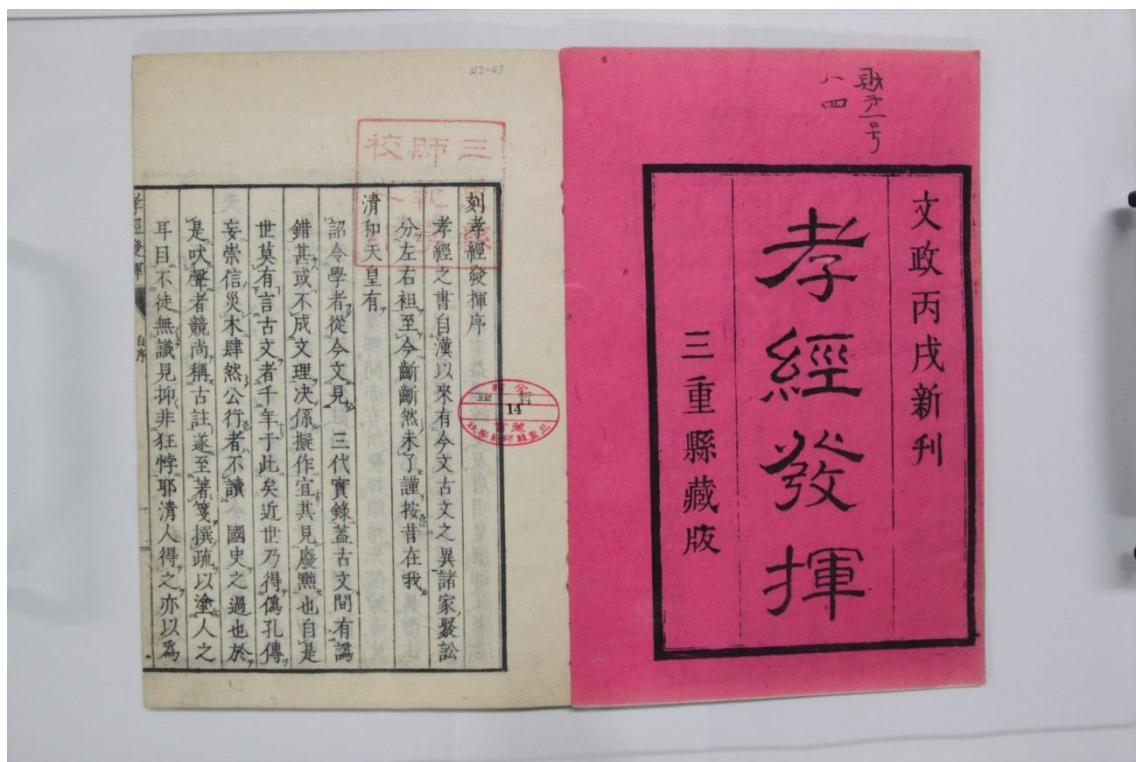 文政丙戌新刊
孝經發揮
三重縣藏版
八四
刻孝經發揮序
孝經之書自漢以來有今文古文之異諸家聚訟
分左右袒至今齗齗然未了謹按昔在我
清和天皇有
詔令學者從今文見 三代實錄蓋古文間有譌
錯甚或不成文理决係擬作宜其見廢黜也自是
世莫有言古文者千年于此矣近世乃得僞孔傳
妄崇信災木肆然公行者不讀 國史之過也於
是吠聲者競尚稱古註遂至著箋撰疏以塗人之
耳目不徒無識見抑非狂悖耶清人得之亦以爲
孝經發揮
自序
14